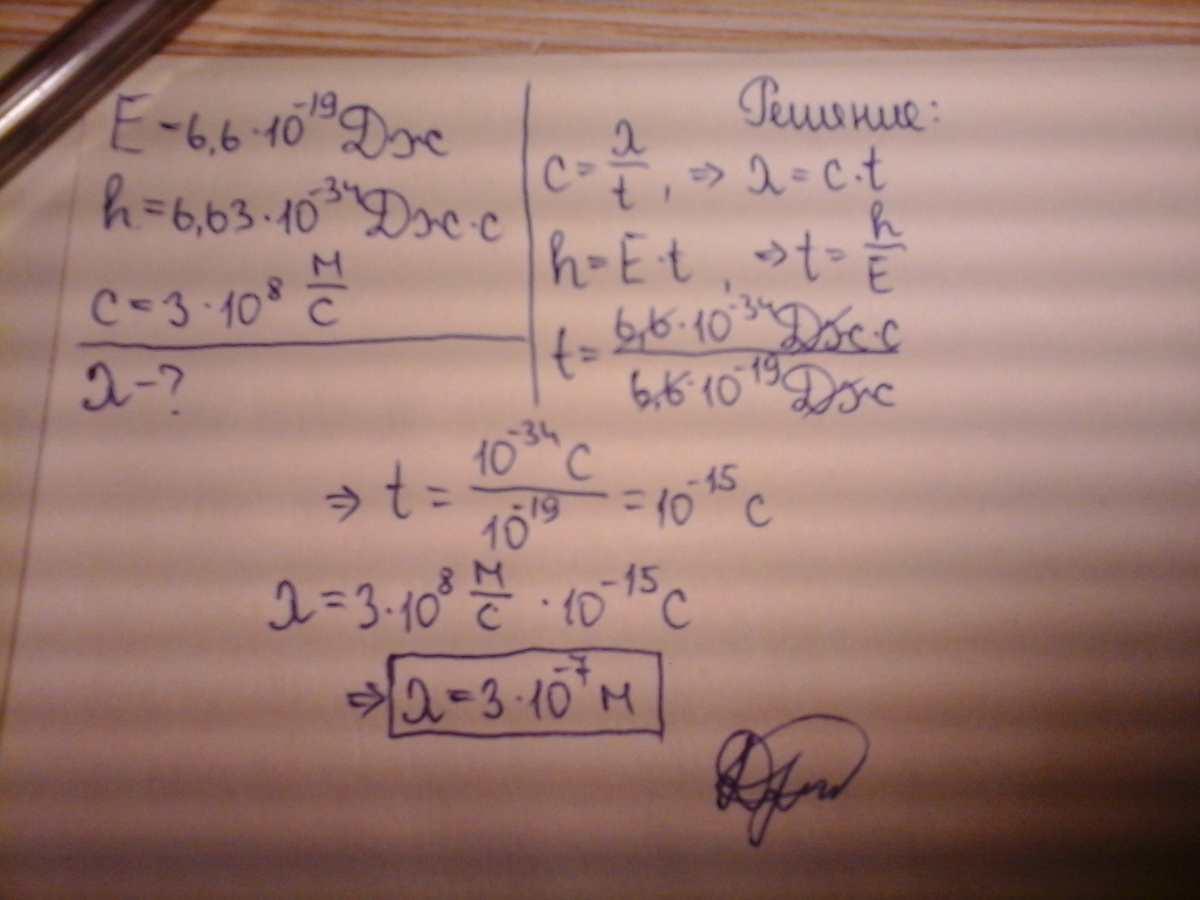 E - 6,6 · 10⁻¹⁹ Дж
h = 6,63 · 10⁻³⁴ Дж · с
c = 3 · 10⁸ м/с
λ - ?
Решение:
c = λ/t, ⇒ λ = c · t
h = E · t, ⇒ t = h/E
t = 6,6 · 10⁻³⁴ Дж · с / 6,6 · 10⁻¹⁹ Дж
⇒ t = 10⁻³⁴ с / 10⁻¹⁹ = 10⁻¹⁵ с
λ = 3 · 10⁸ м/с · 10⁻¹⁵ с
⇒ λ = 3 · 10⁻⁷ м